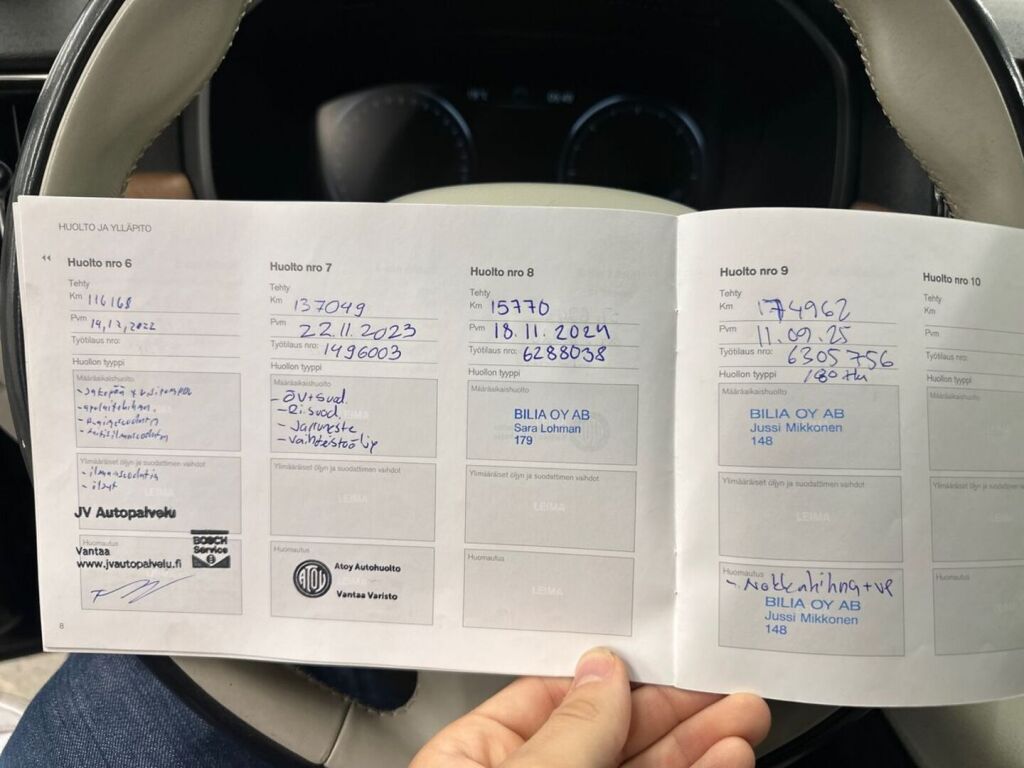 HUOLTO JA YLLÄPITO
Huolto nro 6
Tehty
Km 116168
Pvm 14,12,2022
Työtilaus nro:
Huollon tyyppi
Määräaikaishuolto
Ylimääräiset öljyn ja suodattimen vaihdot
- ilmansuodatin
- öljyt
JV Autopalvelu
Huomautus
Vantaa
www.jvautopalvelu.fi
BOSCH
Service
8
Huolto nro 7
Tehty
Km 137049
Pvm 22.11.2023
Työtilaus nro: 1496003
Huollon tyyppi
Määräaikaishuolto
- ÖV+suod.
- Ri.suod.
- Jarruneste
- Vaihteistoöljy
Ylimääräiset öljyn ja suodattimen vaihdot
LEIMA
Huomautus
ATOY
Atoy Autohuolto
Vantaa Varisto
Huolto nro 8
Tehty
Km 15770
Pvm 18.11.2024
Työtilaus nro: 6288038
Huollon tyyppi
Määräaikaishuolto
BILIA OY AB
Sara Lohman
179
Ylimääräiset öljyn ja suodattimen vaihdot
LEIMA
Huomautus
LEIMA
Huolto nro 9
Tehty
Km 174962
Pvm 11.09.25
Työtilaus nro: 6305756
Huollon tyyppi 180 tkm
Määräaikaishuolto
BILIA OY AB
Jussi Mikkonen
148
Ylimääräiset öljyn ja suodattimen vaihdot
LEIMA
Huomautus
- Nokkahihna + VP
BILIA OY AB
Jussi Mikkonen
148
Huolto nro 10
Tehty
Km
Pvm
Työtilaus nro:
Huollon tyyppi
Määräaikaishuolto
Ylimääräiset öljyn ja
Huomautus